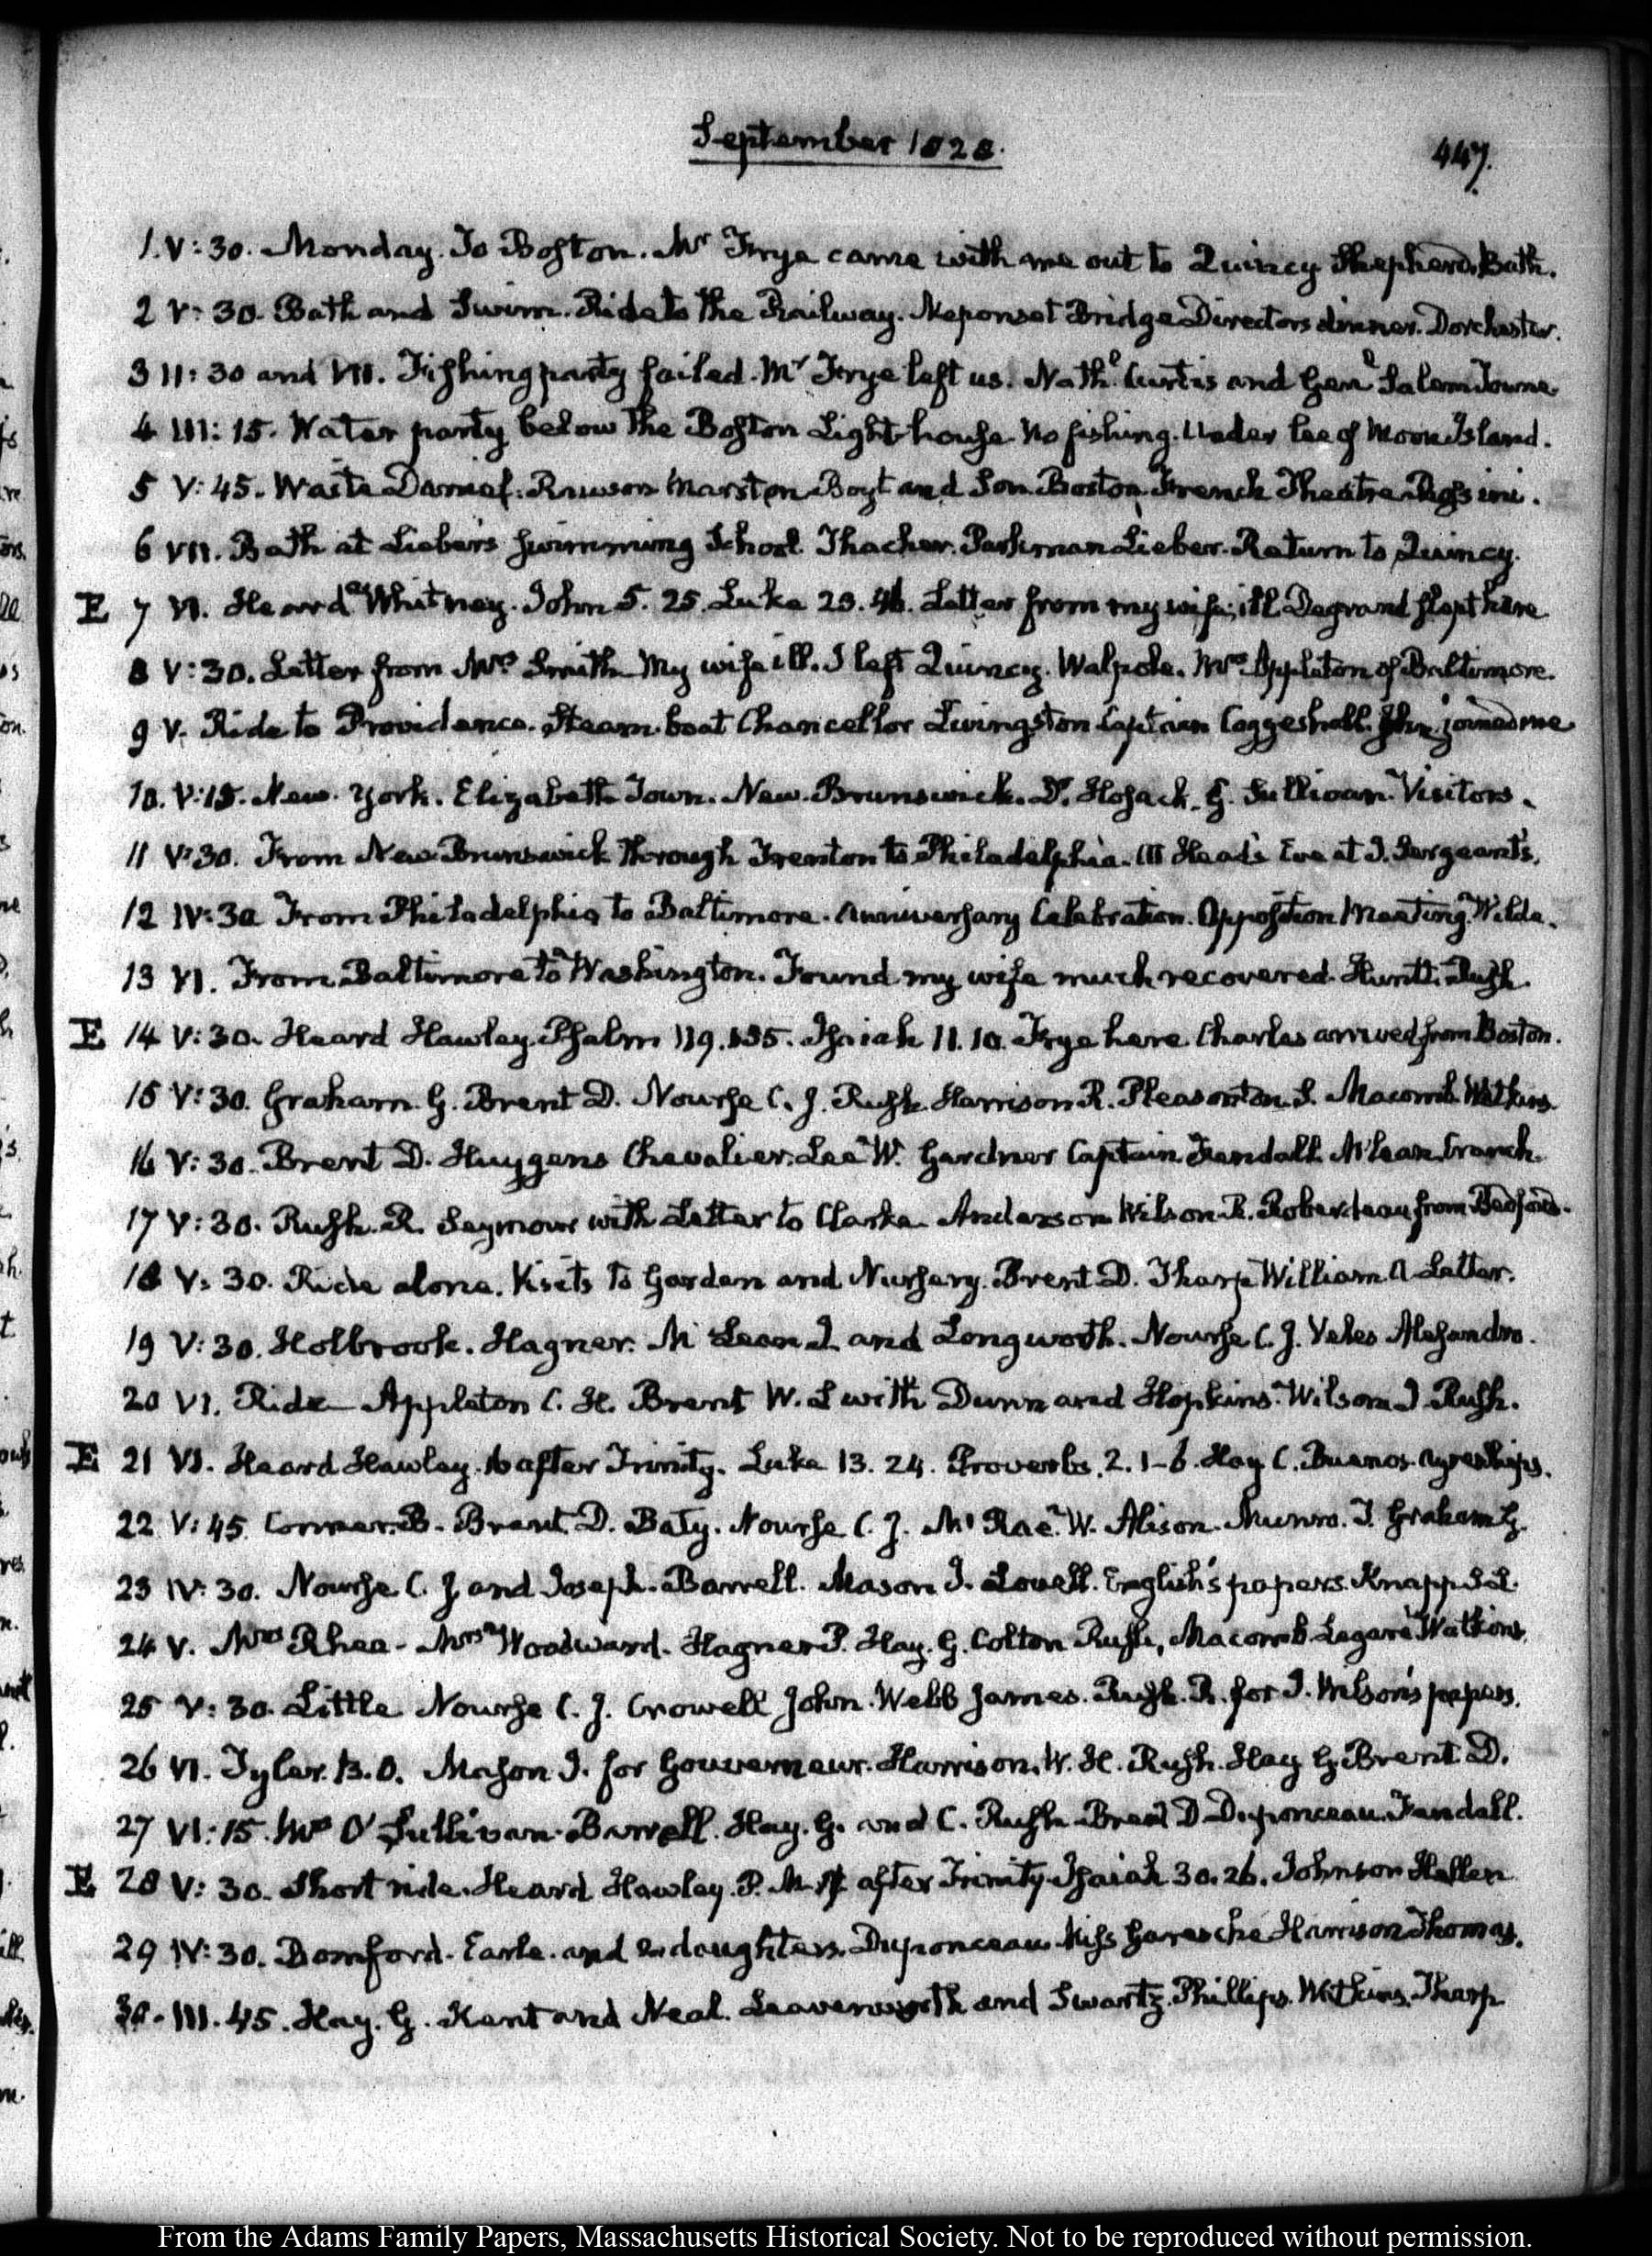 September 1828.
447.
1. V:30. Monday. To Boston. Mr Frye came with me out to Quincy Shepherd. Bath.
2 V:30. Bath and Swim. Ride to the Railway. Neponset Bridge Directors dinner. Dorchester.
3 II:30 and VII. Fishing party failed. Mr Frye left us. Nathl Curtis and Genl Salem Towne
4 III:15. Water party below the Boston Light house no fishing. Under lee of Moon Island.
5 V:45. Waite Daniel. Rawson Marston Boyt and Son. Boston French Theatre Rossini.
6 VII. Bath at Lieber's swimming School. Thacher. Parkman Lieber. Return to Quincy.
E 7 VI. Heard Whitney. John 5. 25. Luke 23. 46. Letter from my wife; ill Degrand slept here
8 V:30. Letter from Mrs Smith My wife ill. I left Quincy. Walpole. Mrs Appleton of Baltimore.
9 V. Ride to Providence. Steam-boat Chancellor Livingston Captain Coggeshall. John joined me
10. V:15. New-York. Elizabeth Town. New-Brunswick. D. Hosack. G. Sullivan. Visitors.
11 V:30. From New-Brunswick through Trenton to Philadelphia. Head's Eve at J. Sergeant's.
12 IV:30 From Philadelphia to Baltimore. Anniversary Celebration. Opposition Meeting. Wilde.
13 VI. From Baltimore to Washington. Found my wife much recovered. Hunt. Rush.
E 14 V:30. Heard Hawley. Psalm 119. 135. Isaiah 11. 10. Frye here Charles arrived from Boston.
15 V:30. Graham. G. Brent D. Nourse C. J. Rush. Harrison R. Pleasonton. S. Macomb Watkins.
16 V:30. Brent D. Huygens Chevalier. Lee W. Gardner Captain Kendall McLean. Cranch.
17 V:30. Rush. R. Seymour with Letter to Clarke. Anderson Wilson. R. Roberdeau from Bedford.
18 V:30. Ride alone. Visits to Garden and Nursery. Brent D. Tharp William A Letter.
19 V:30. Holbrook. Hagner. McLean J. and Longworth. Nourse C. J. Veles Alejandro.
20 VI. Ride Appleton C. H. Brent W. L with Dunn and Hopkins. Wilson J. Rush.
E 21 VI. Heard Hawley. 16 after Trinity. Luke 13. 24. Proverbs. 2. 1-6. Hay C. Buenos Ayres ships.
22 V:45 Conner. B. Brent. D. Baty. Nourse C. J. McRae W. Alison. Munro. T. Graham G.
23 IV:30. Nourse C. J and Joseph. Barrell. Mason J. Lovell. English's papers. Knapp S. L.
24 V. Mrs Rhea. Mrs Woodward. Hagner P. Hay. G. Colton Rush, Macomb Legare Watkins.
25 V:30. Little Nourse C. J. Crowell John. Webb James. Rush. R. for J. Wilson's papers.
26 VI. Tyler. B. O. Mason J. for Gouverneur. Harrison. W. H. Rush. Hay G. Brent D.
27 VI:15. Mrs O'Sullivan. Barrell. Hay. G. and C. Rush Brent D Duponceau. Kendall.
E 28 V:30. Short ride. Heard Hawley. P. M. 17 after Trinity. Isaiah 30. 26. Johnson Hellen
29 IV:30. Bomford. Earle. and 2 daughters. Duponceau Miss Garesche Harrison Thomas.
30. III. 45. Hay. G. Kent and Neal. Leavenworth and Swartz. Phillips. Watkins. Tharp
From the Adams Family Papers, Massachusetts Historical Society. Not to be reproduced without permission.